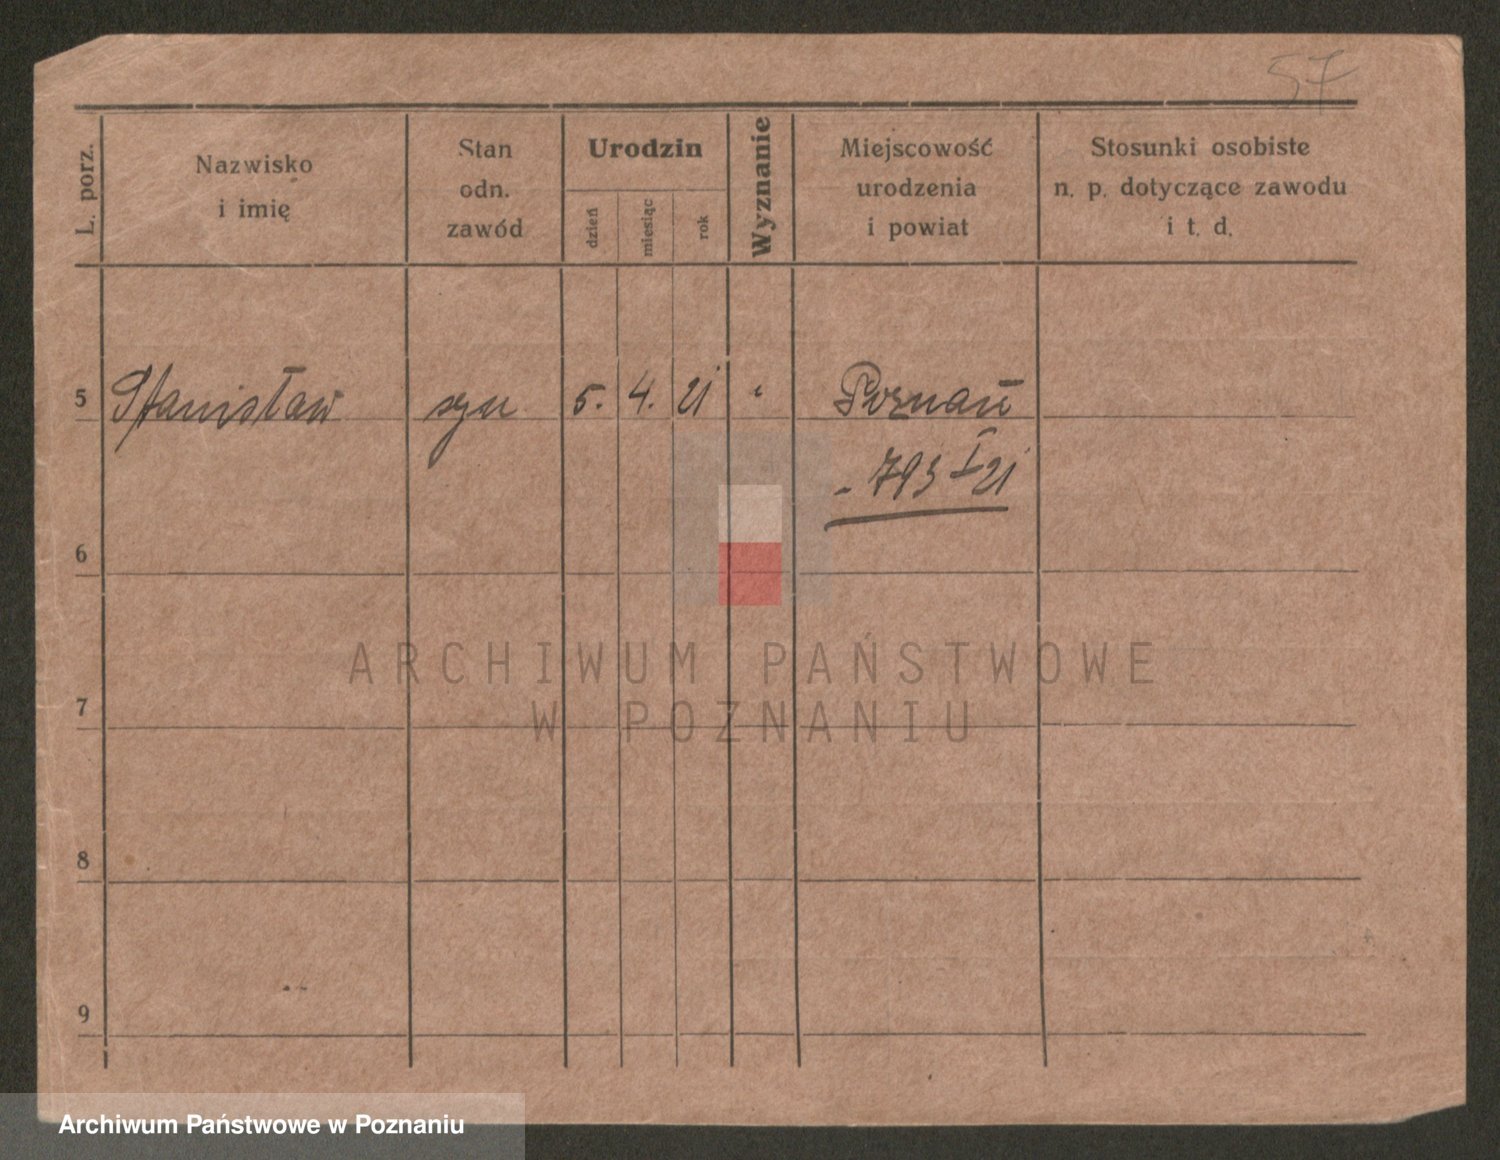 57
L. porz.
Nazwisko
i imię
Stan
odn.
zawód
Urodzin
dzień
miesiąc
rok
Wyznanie
Miejscowość
urodzenia
i powiat
Stosunki osobiste
n. p. dotyczące zawodu
i t. d.
5 Stanisław syn 5. 4. 21 " Poznań
- 793 I 21
6
7
8
9
ARCHIWUM PAŃSTWOWE
W POZNANIU
Archiwum Państwowe w Poznaniu